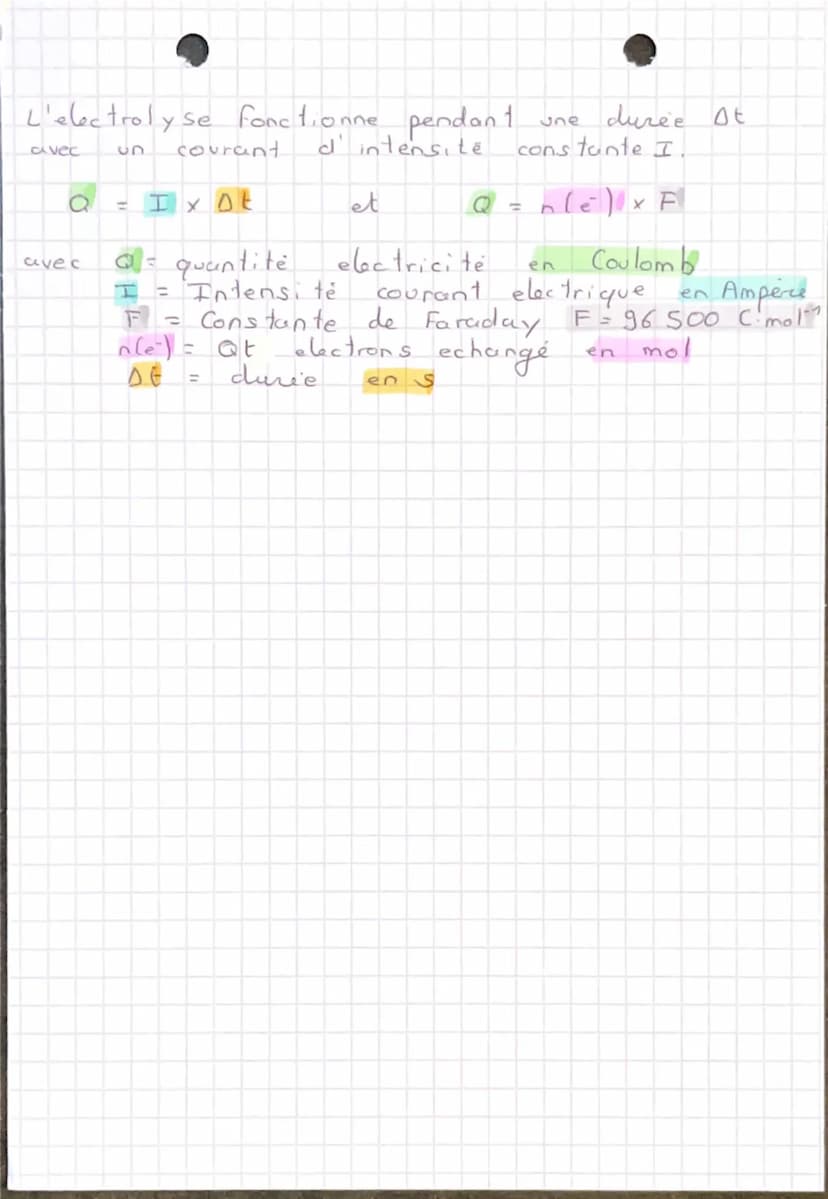 L'electrolyse fonctionne pendant une durée Δt
avec un courant d'intensité constante I.
Q = I x Δt et Q = n(e⁻) x F
avec Q = quantité electricité en Coulomb
I = Intensité courant electrique en Ampère
F = Constante de Faraday F = 96 500 C.mol⁻¹
n(e⁻) = Qt electrons echangé en mol
Δt = durée en s